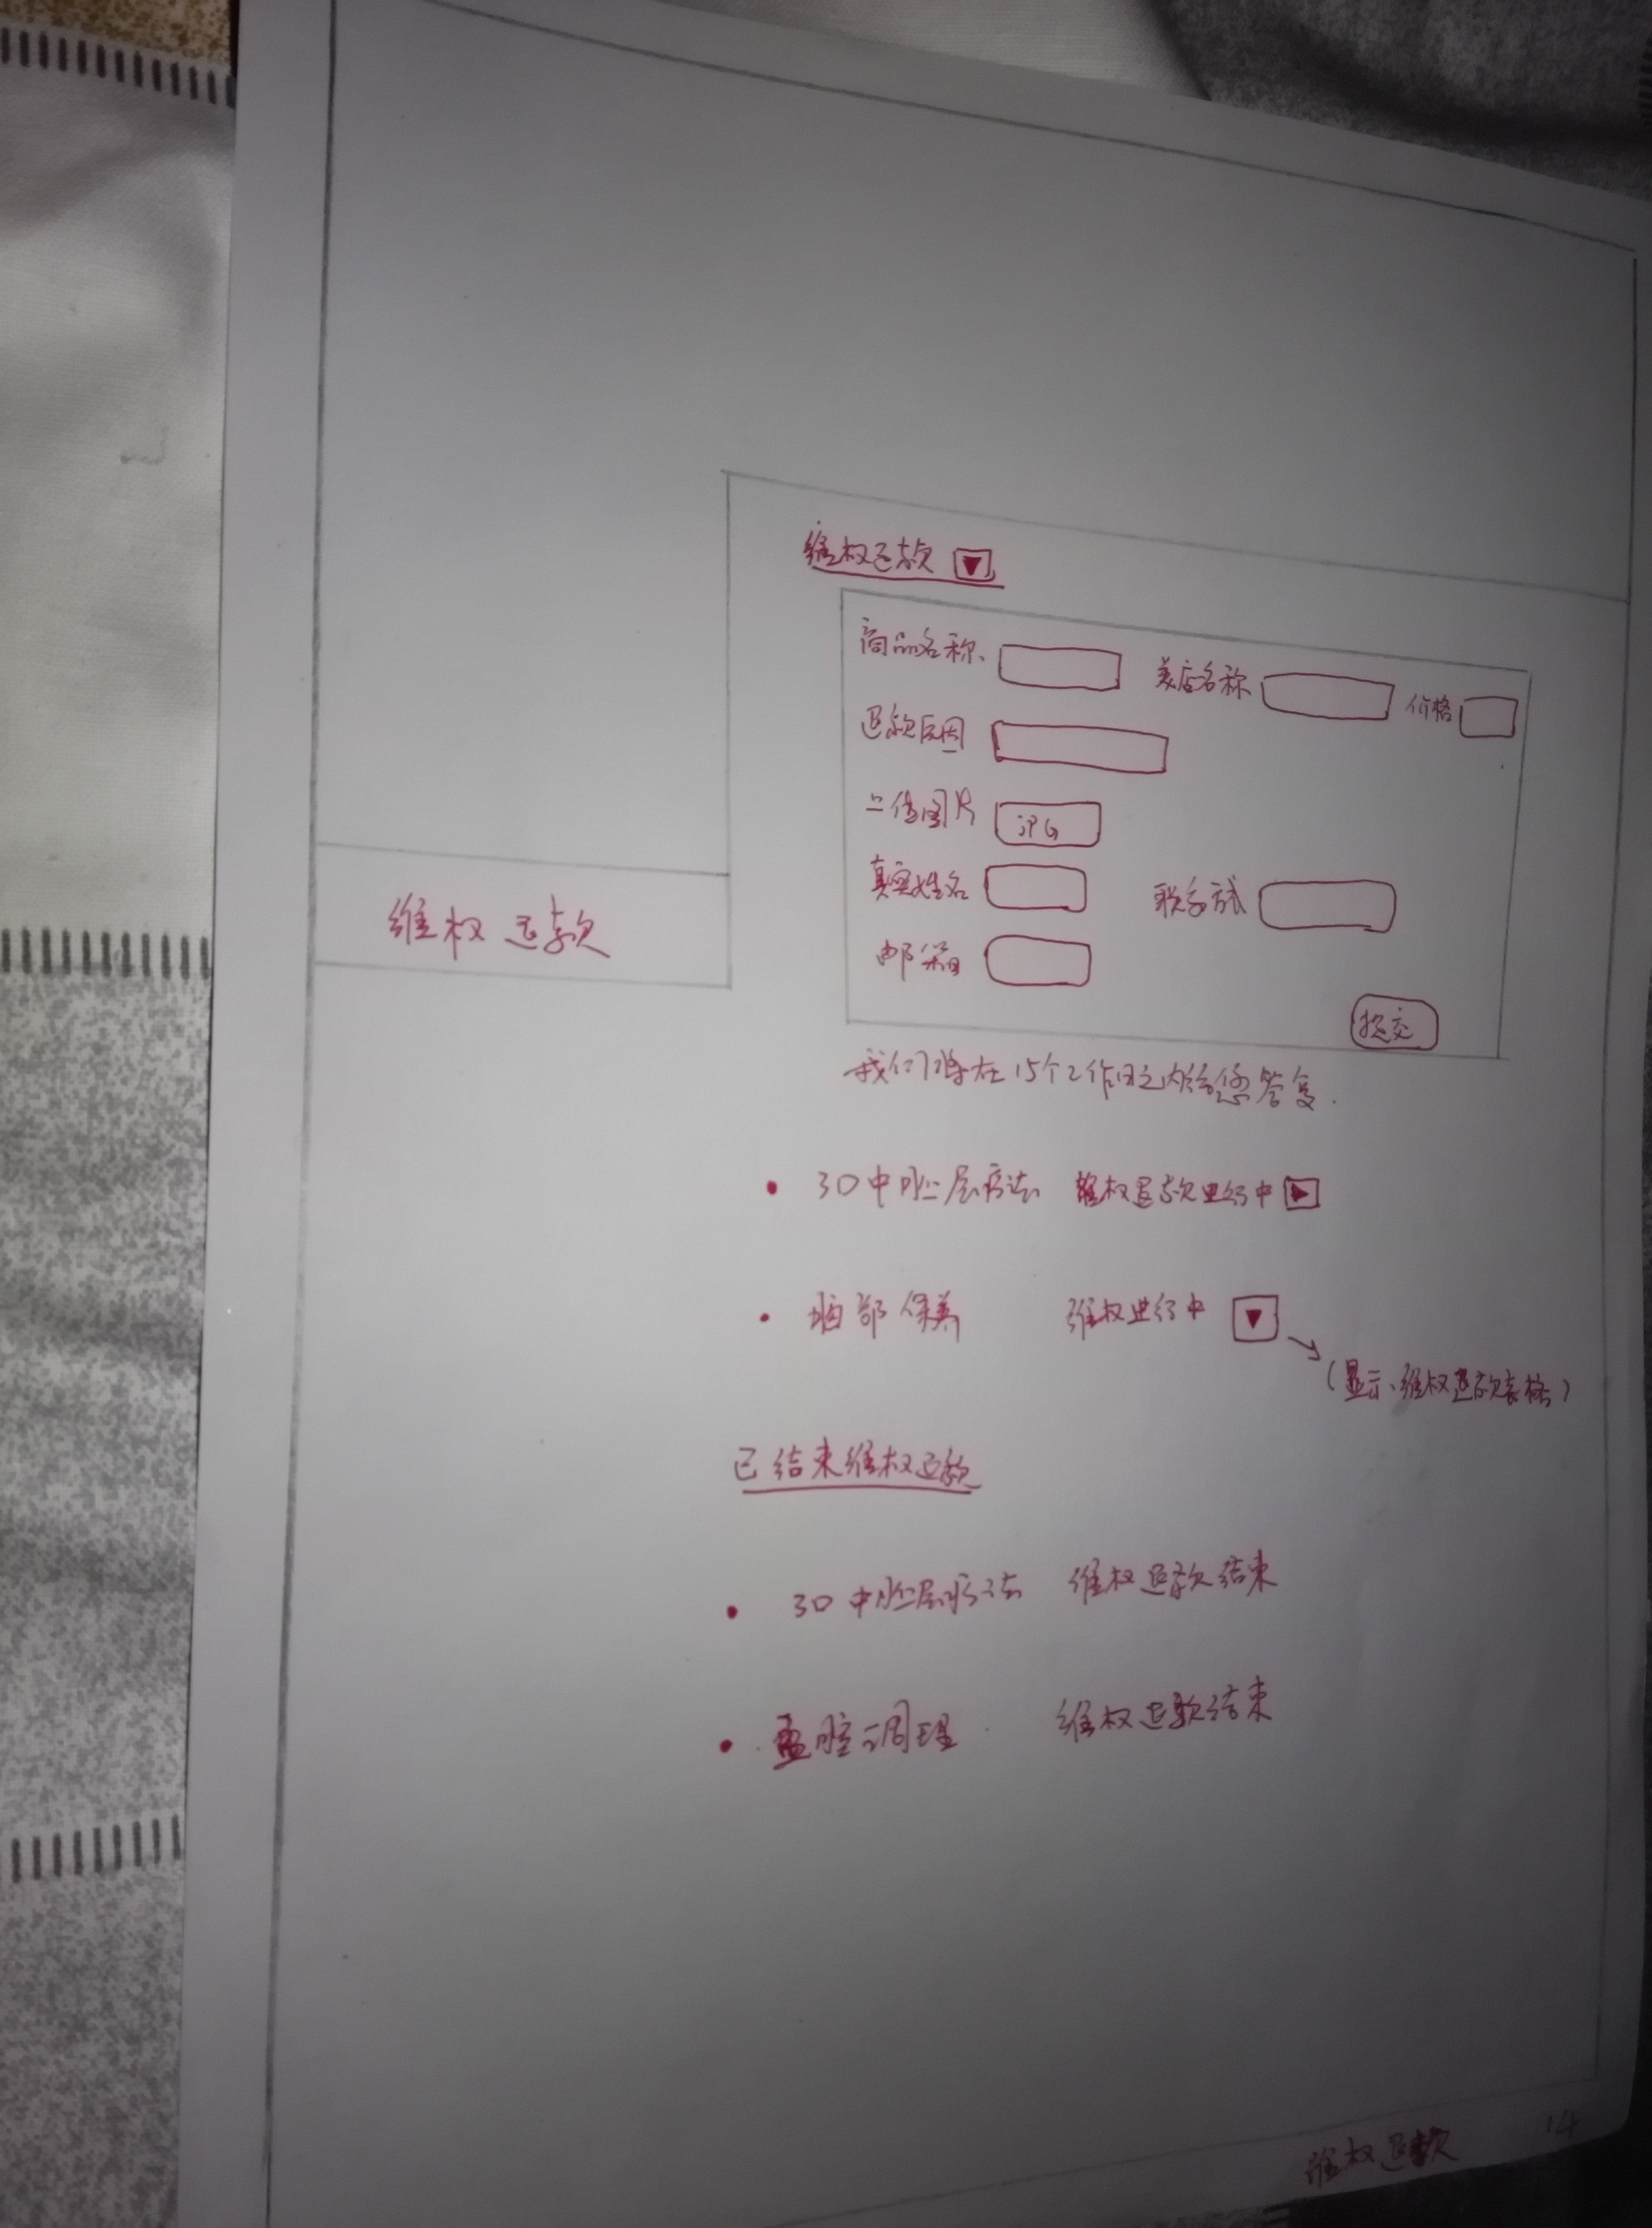 维权退款
商品名称、 美店名称 价格
退款原因
上传图片 JPG
真实姓名 联系方式
邮箱
提交
维权退款
我们将在15个工作日之内给您答复.
• 3D中胚层疗法 维权退款进行中
• 脑部保养 维权进行中
(显示维权退款表格)
已结束维权退款
• 3D中胚层疗法 维权退款结束
• 盆腔调理 维权退款结束
维权退款 14